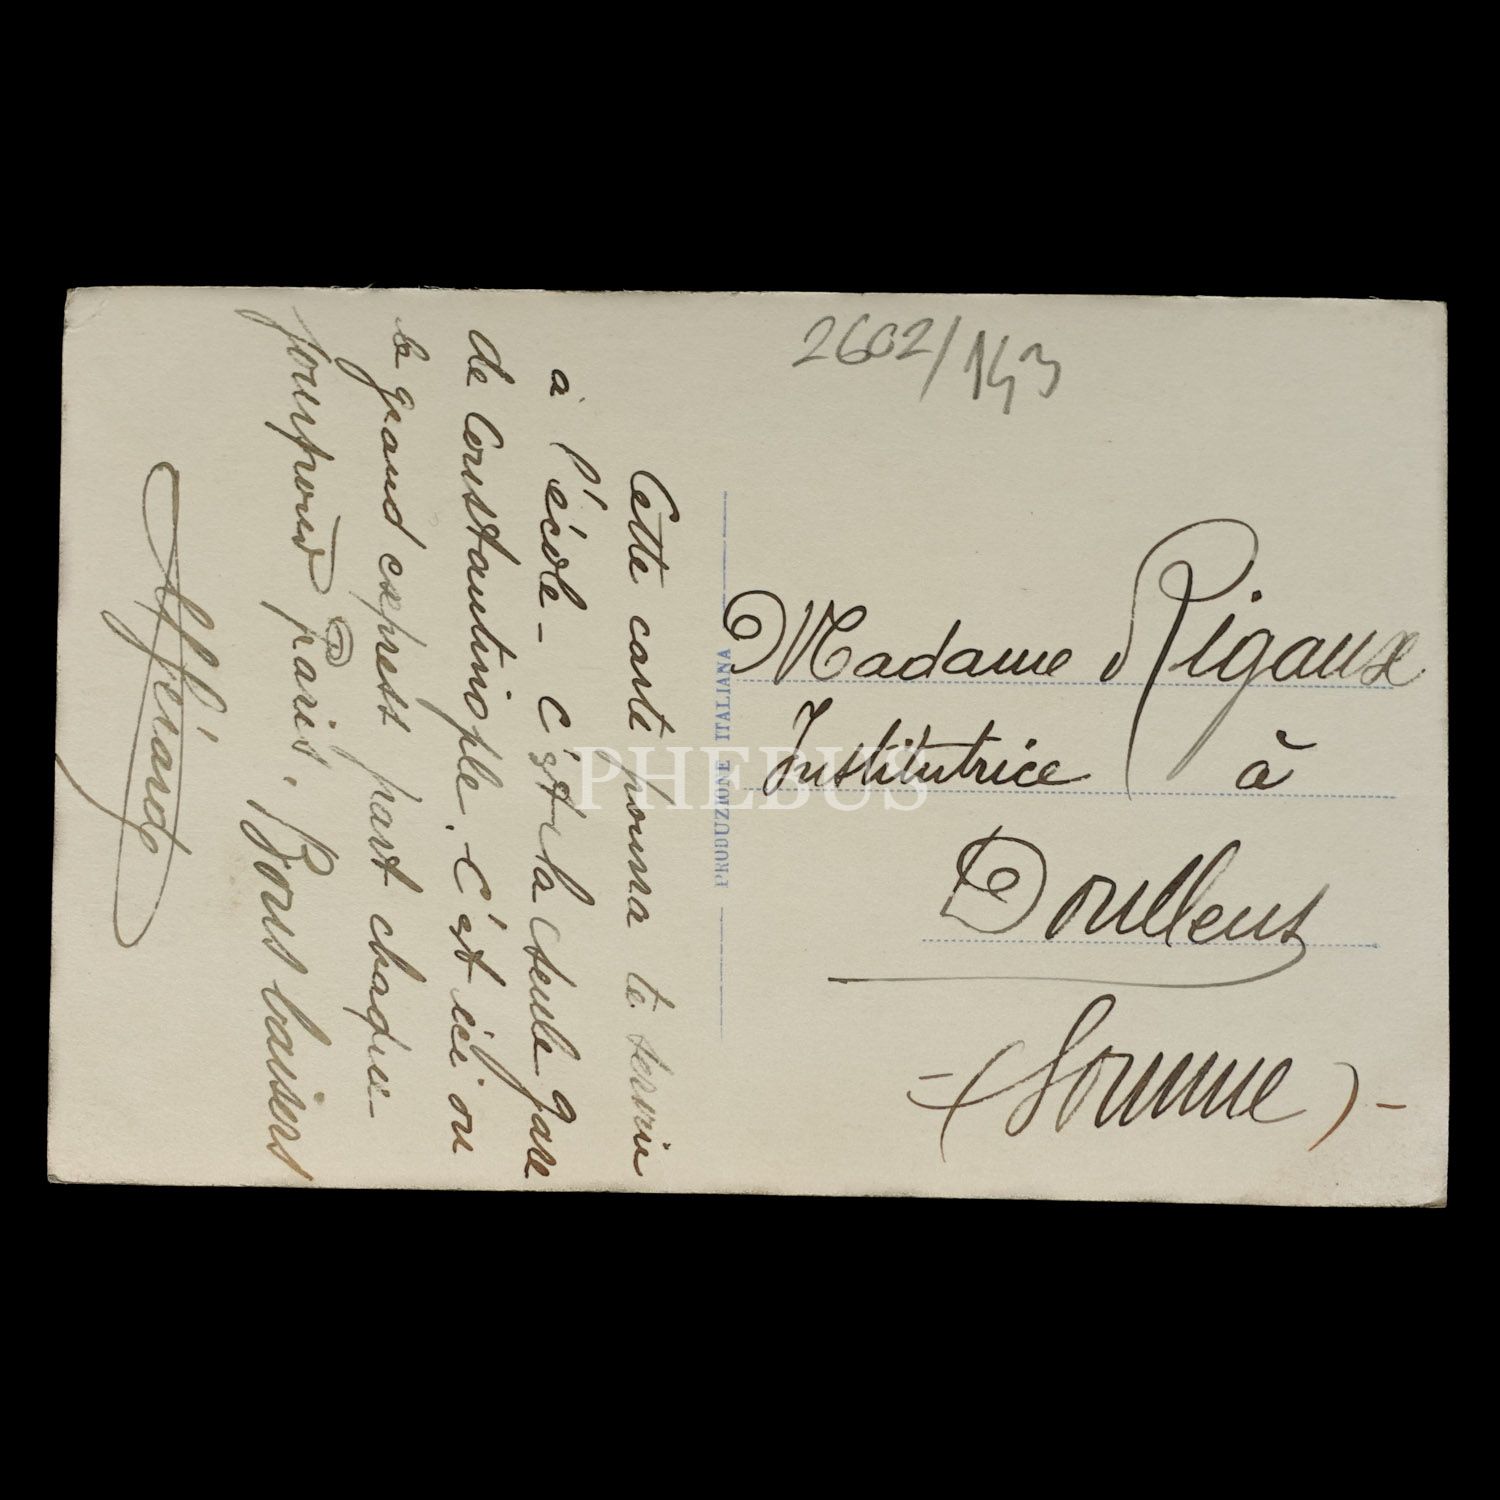 2602/143
Cette carte pourra te servir
à l'école - C'est la seule gare
de Constantinople. C'est ici ou
le grand express part chaque
jour pour Paris. Bons baisers
PRODUZIONE ITALIANA
Madame Rigaux
Institutrice à
Doullens
-(Somme)-
PHEBUS